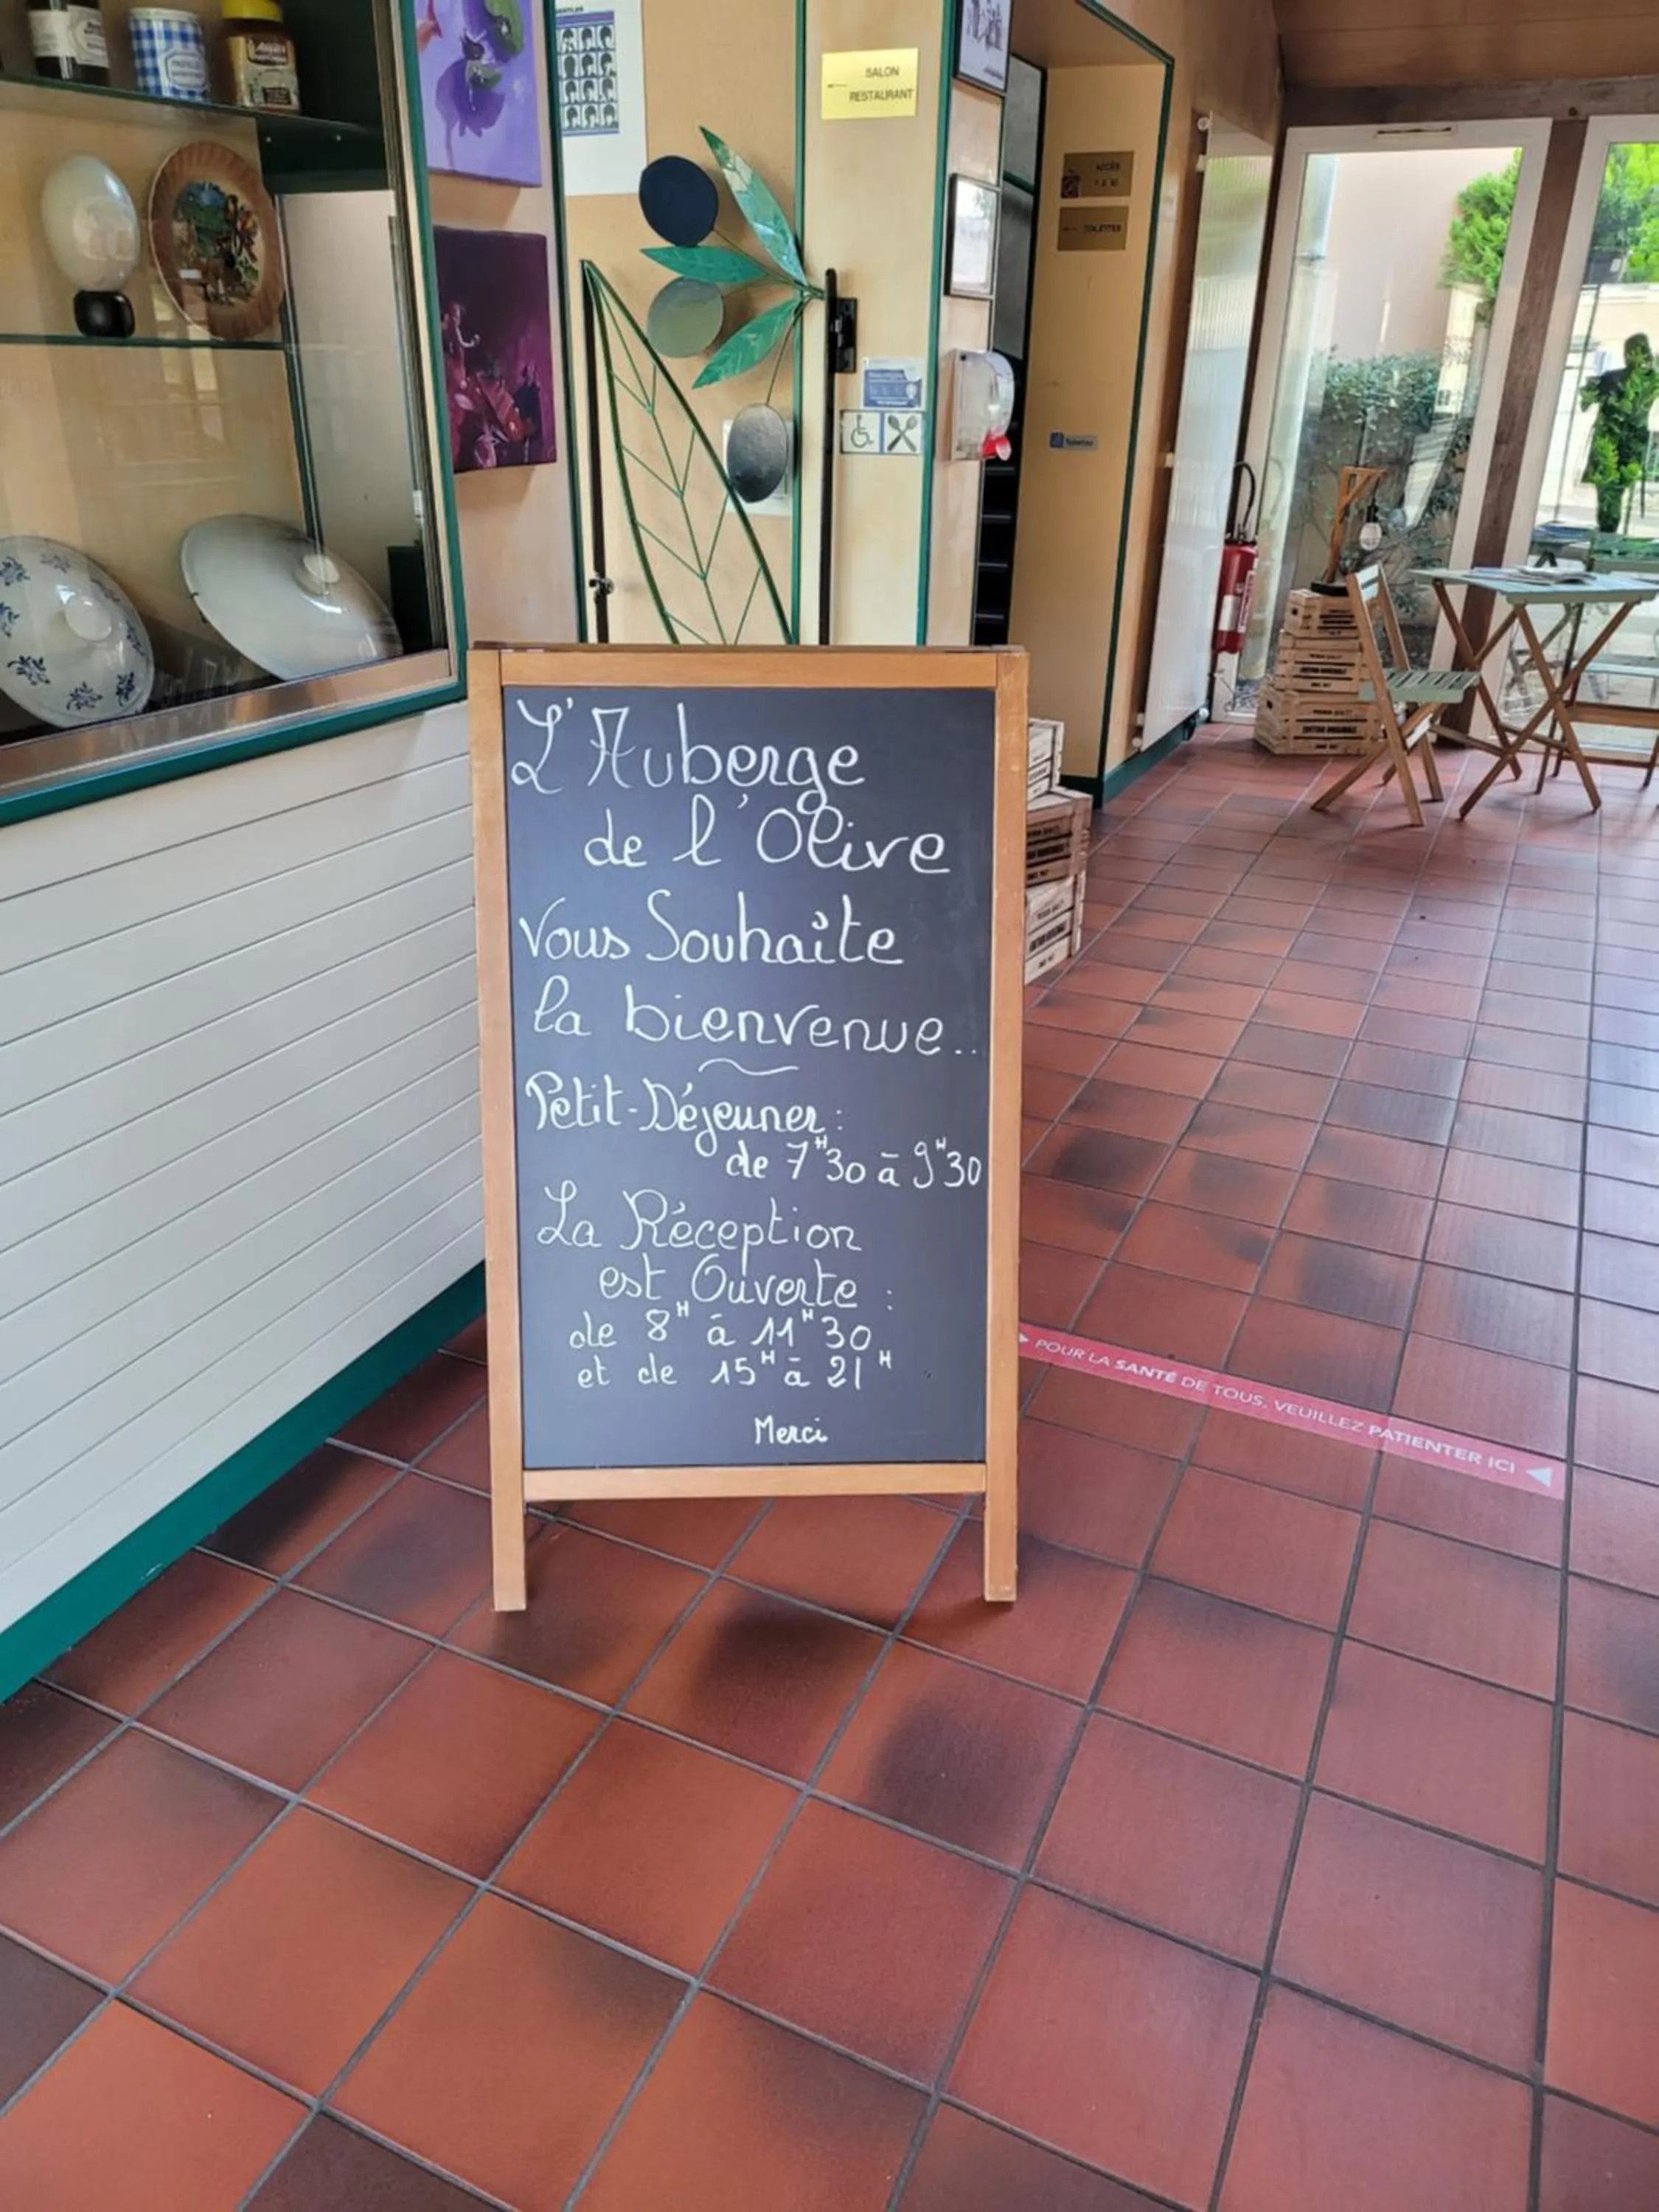 SALON
RESTAURANT
ACCÈS
TOILETTES
L'Auberge
de l'Olive
Vous Souhaite
la bienvenue..
Petit-Déjeuner :
de 7H30 à 9H30
La Réception
est Ouverte :
de 8H à 11H30
et de 15H à 21H
Merci
POUR LA SANTÉ DE TOUS, VEUILLEZ PATIENTER ICI